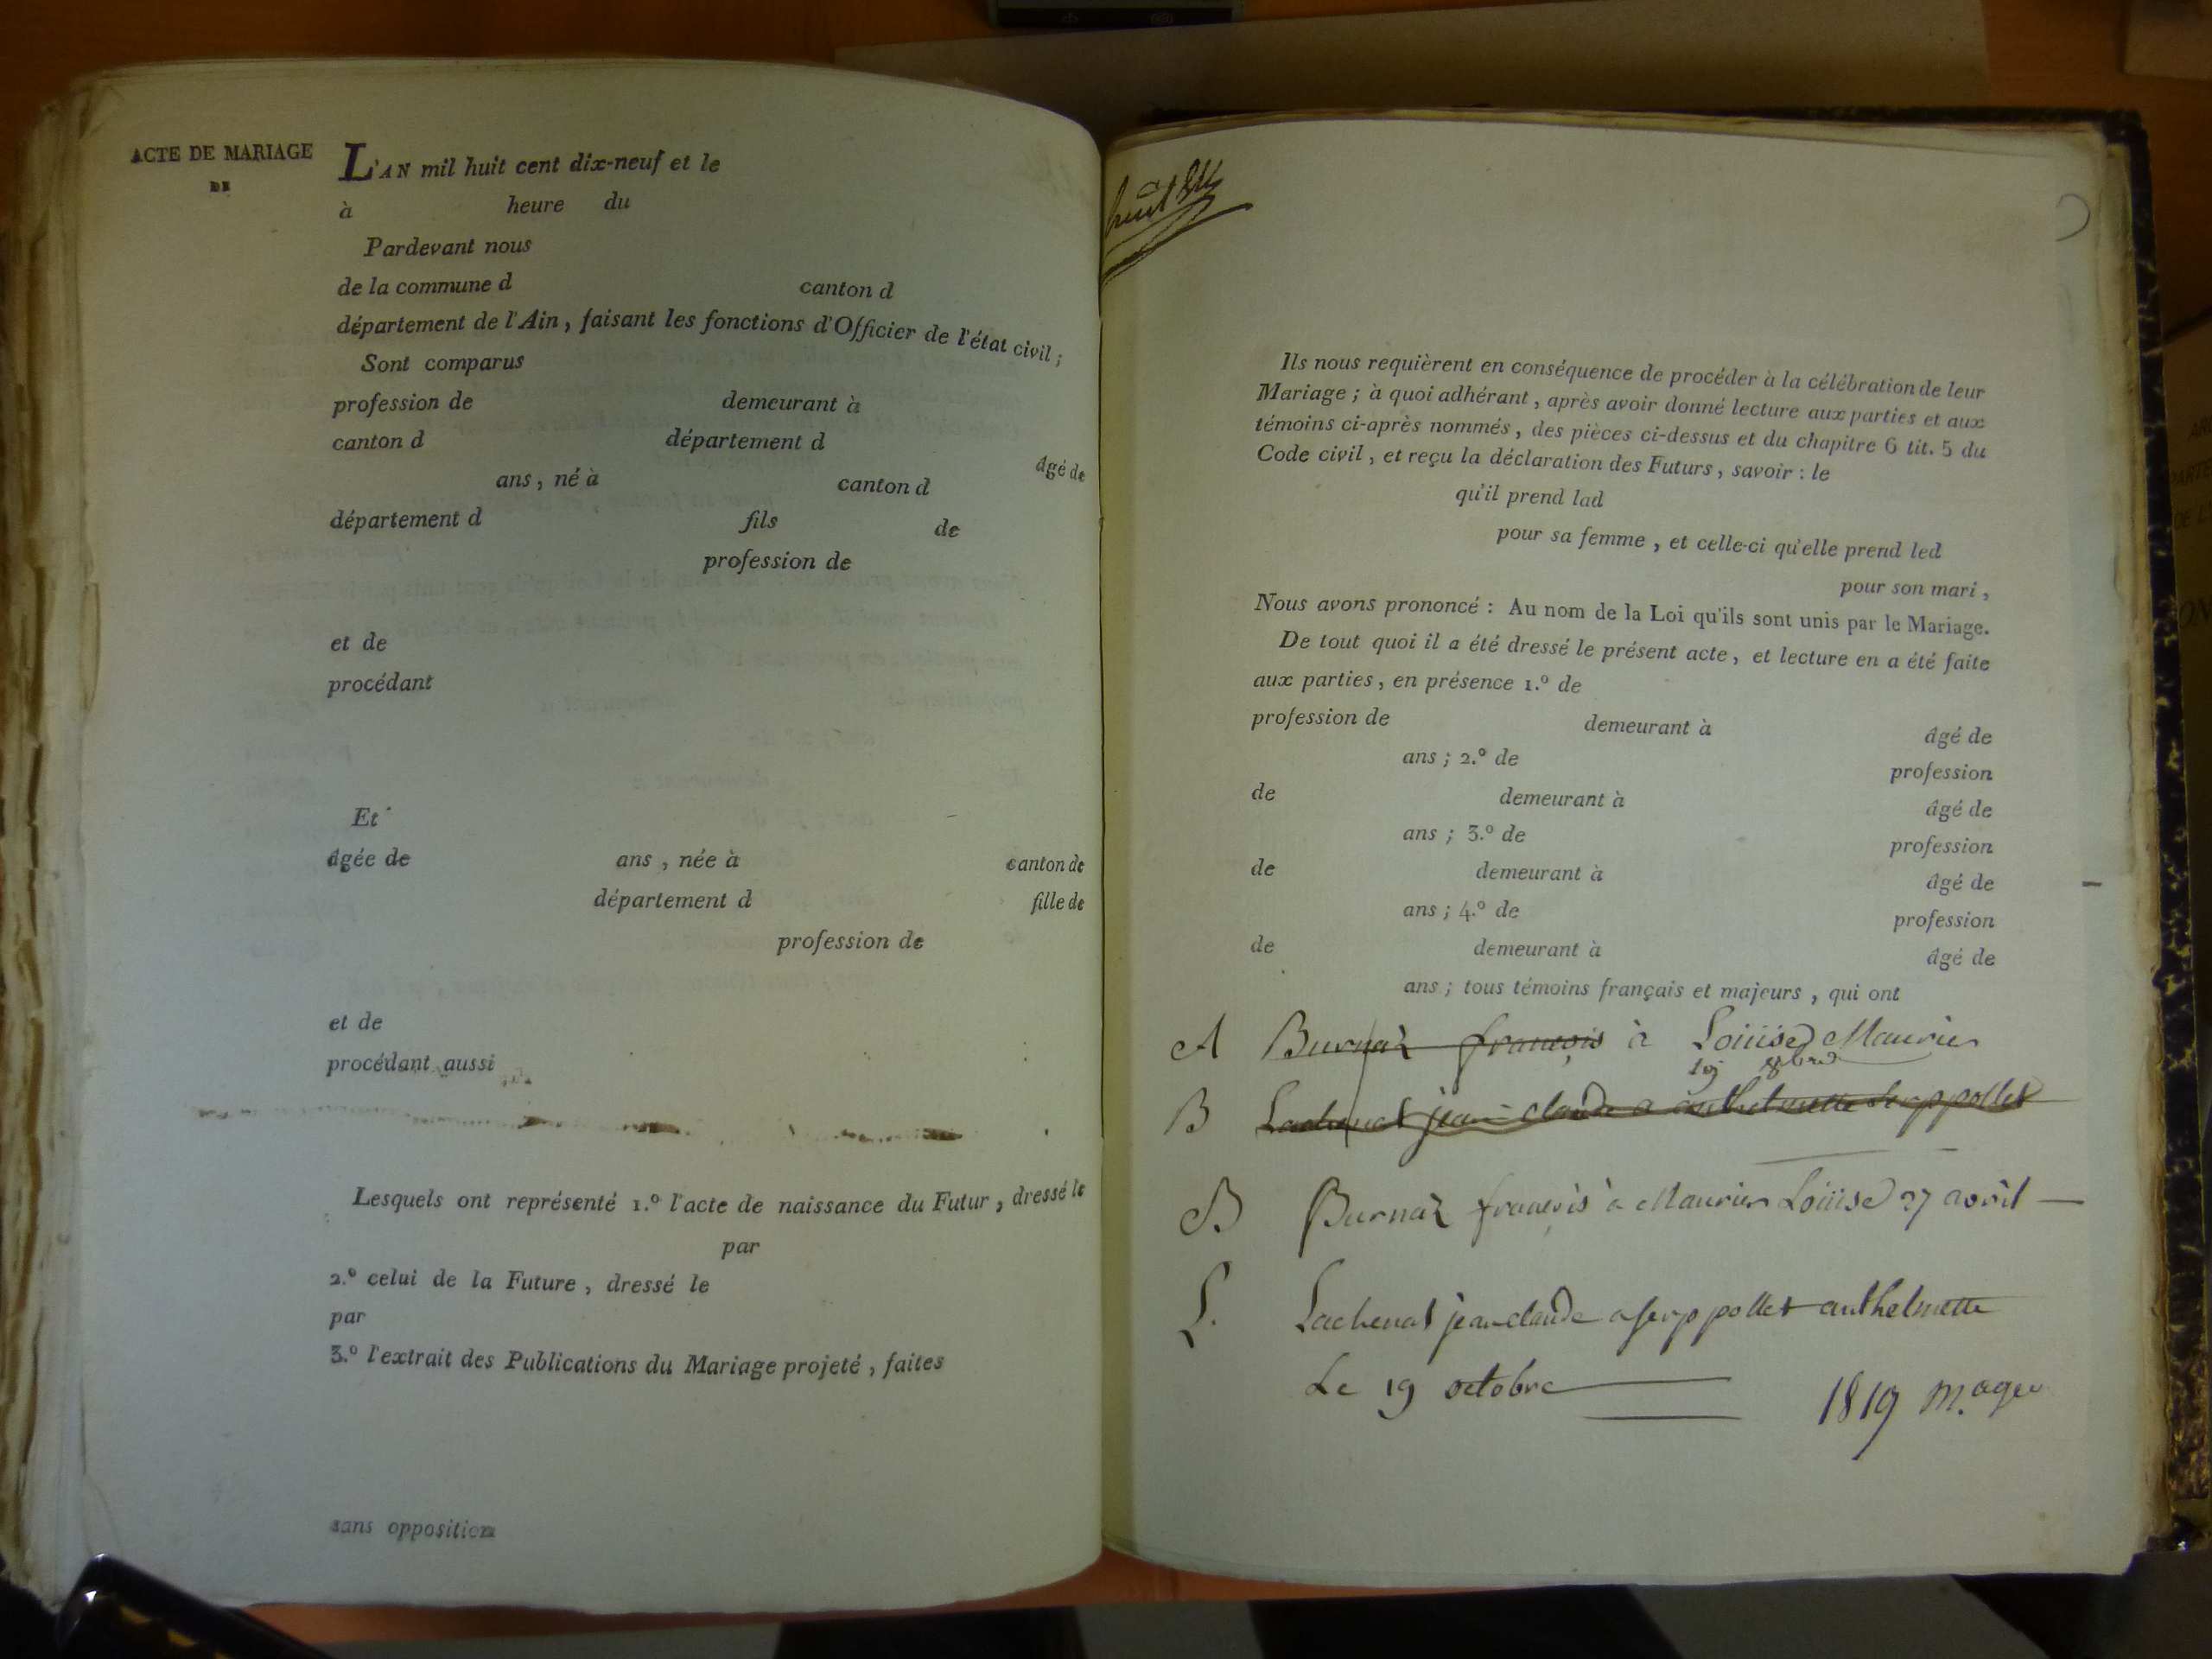 ACTE DE MARIAGE
DE
L'AN mil huit cent dix-neuf et le
à heure du
Pardevant nous
de la commune d canton d
département de l'Ain, faisant les fonctions d'Officier de l'état civil;
Sont comparus
profession de demeurant à
canton d département d
âgé de
ans, né à canton d
département d fils de
profession de
et de
procédant
Et
âgée de ans, née à canton de
département d fille de
profession de
et de
procédant aussi
Lesquels ont représenté 1.º l'acte de naissance du Futur, dressé le
par
2.º celui de la Future, dressé le
par
3.º l'extrait des Publications du Mariage projeté, faites
sans opposition
huit
Ils nous requièrent en conséquence de procéder à la célébration de leur
Mariage; à quoi adhérant, après avoir donné lecture aux parties et aux
témoins ci-après nommés, des pièces ci-dessus et du chapitre 6 tit. 5 du
Code civil, et reçu la déclaration des Futurs, savoir: le
qu'il prend lad
pour sa femme, et celle-ci qu'elle prend led
pour son mari,
Nous avons prononcé: Au nom de la Loi qu'ils sont unis par le Mariage.
De tout quoi il a été dressé le présent acte, et lecture en a été faite
aux parties, en présence 1.º de
profession de demeurant à âgé de
ans; 2.º de profession
de demeurant à âgé de
ans; 3.º de profession
de demeurant à âgé de
ans; 4.º de profession
de demeurant à âgé de
ans; tous témoins français et majeurs, qui ont
A Burnaz françois à Loüise Maurier
19 8bre
B Lachenal jean claude a anthelmette serppollet
B Burnaz françois à Maurier Loüise 27 avril —
L. Lachenal jean claude a serppollet anthelmette
Le 19 octobre
1819 m.ages